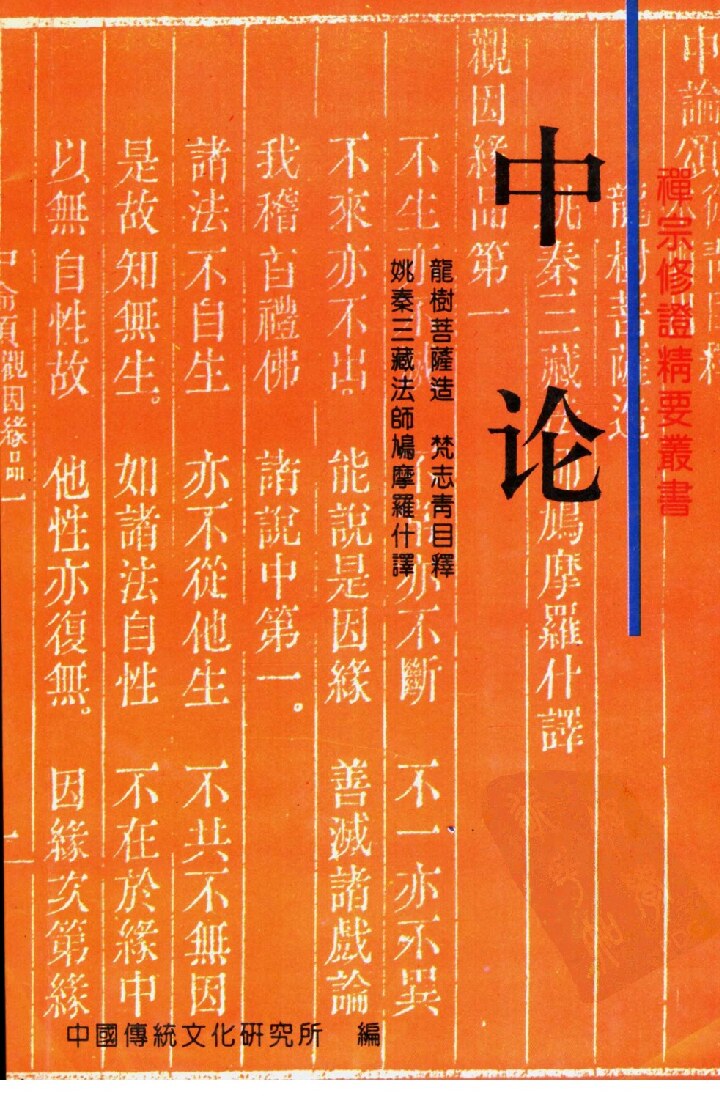 中论
禪宗修證精要叢書
龍樹菩薩造 梵志靑目釋
姚秦三藏法師鳩摩羅什譯
中國傳統文化研究所 編
中論頌
龍樹菩薩造
姚秦三藏法師鳩摩羅什譯
觀因緣品第一
不生亦不滅 亦不斷 不一亦不異
不來亦不出。 能說是因緣 善滅諸戲論
我稽首禮佛 諸說中第一。
諸法不自生 亦不從他生 不共不無因
是故知無生。 如諸法自性 不在於緣中
以無自性故 他性亦復無。 因緣次第緣
觀因緣品一